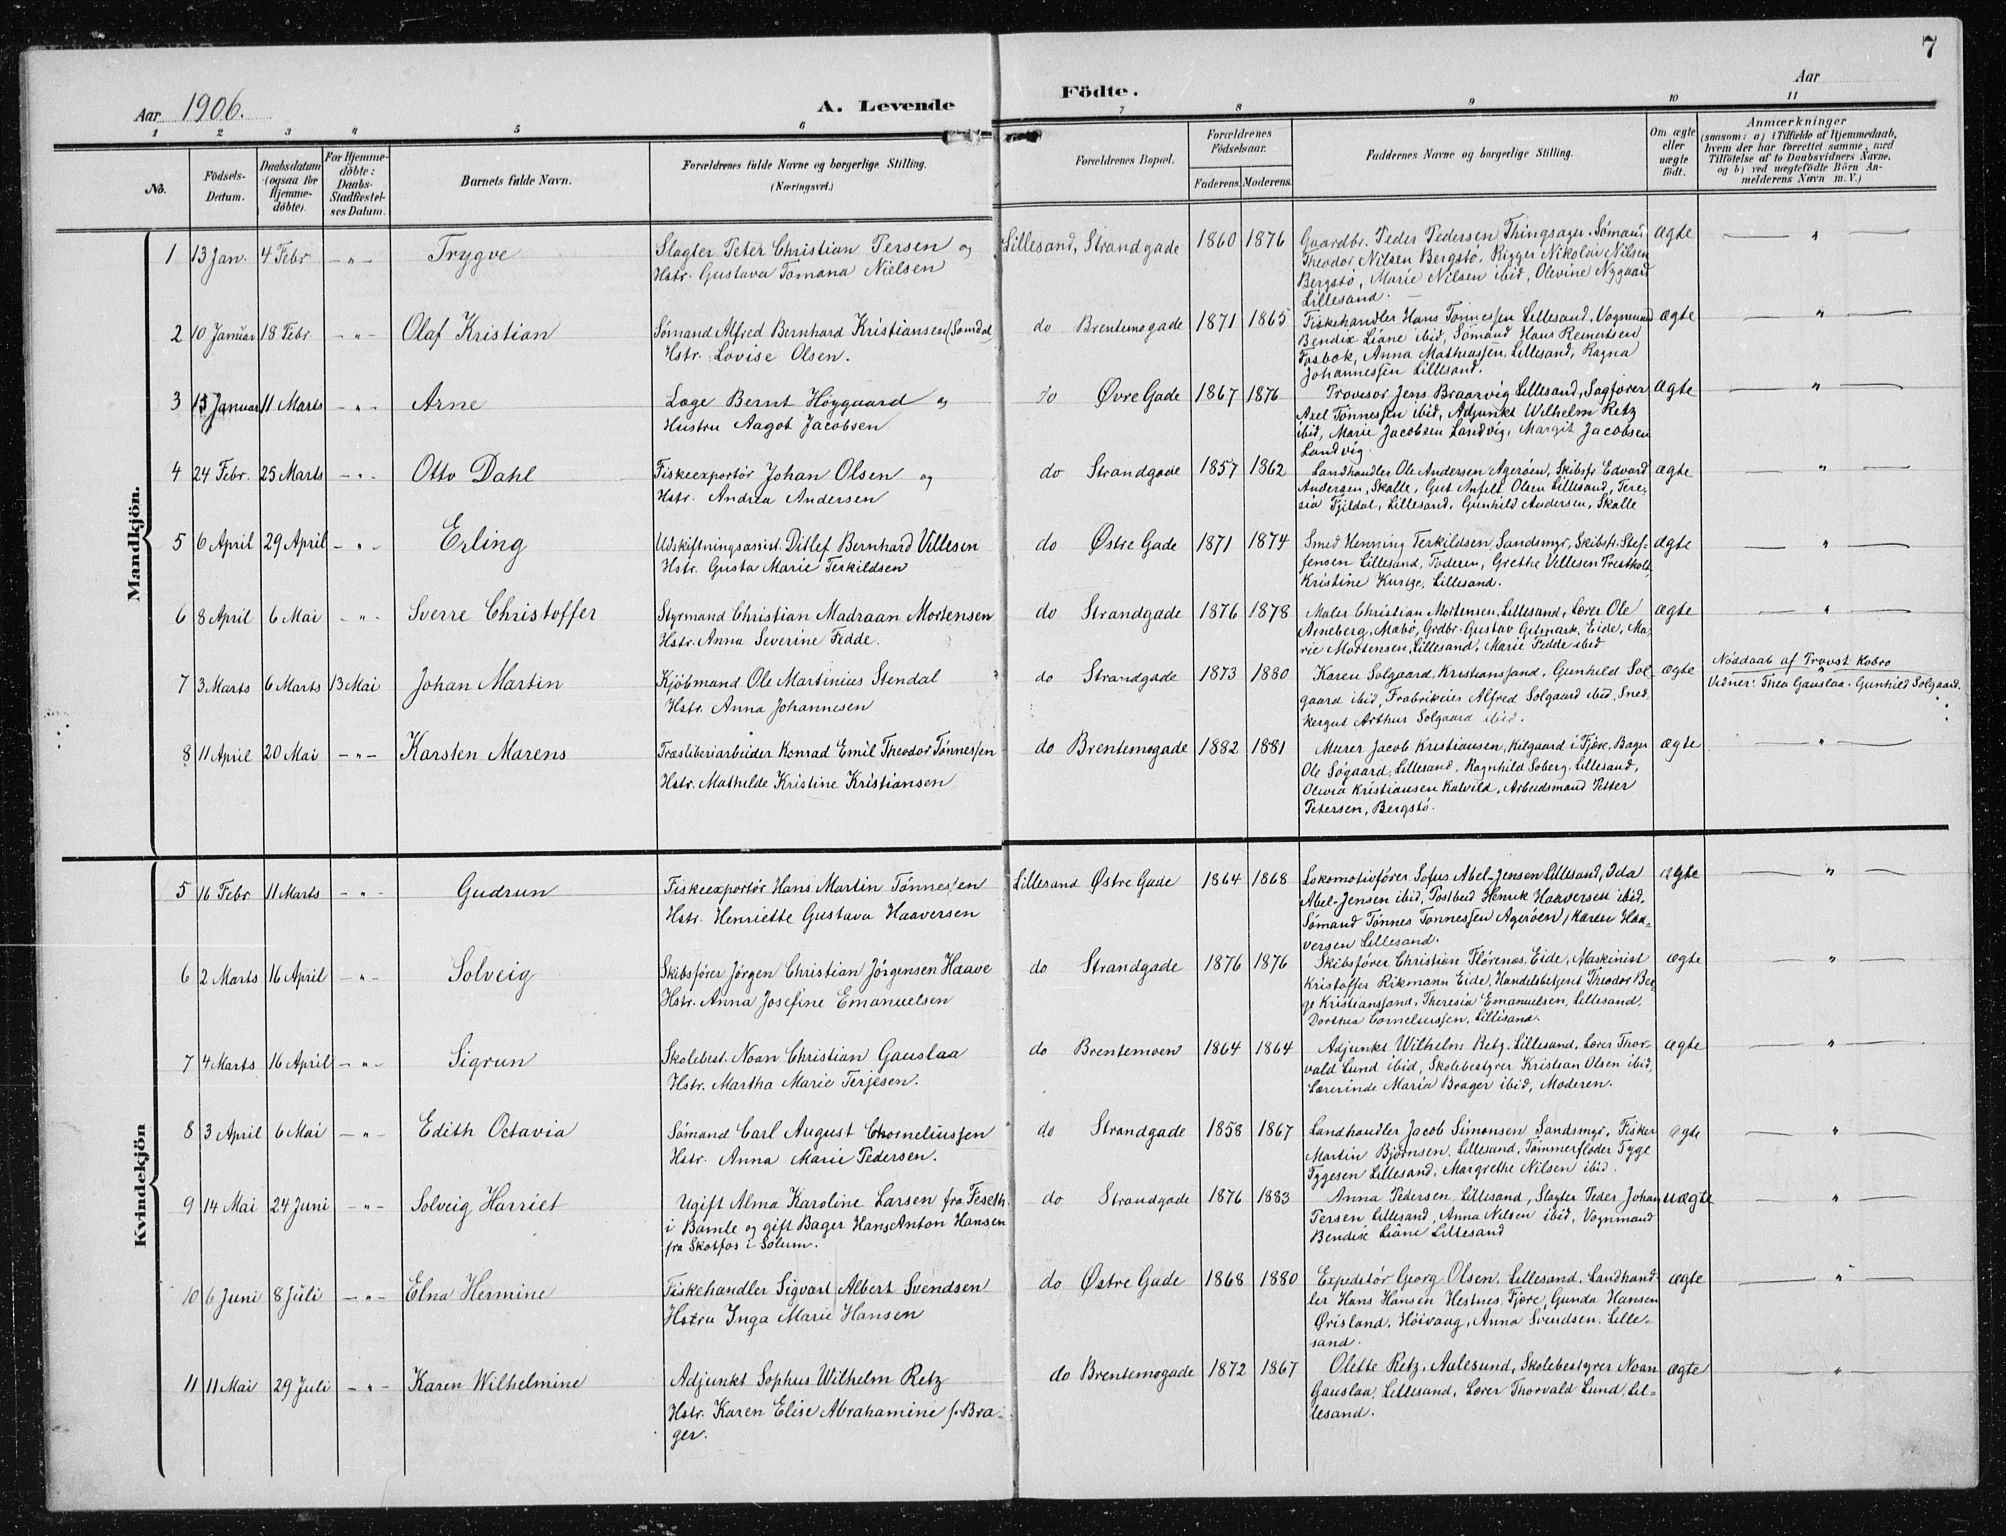 7
Aar 1906.
A. Levende Födte.
Aar
1 2 3 4 5 6 7 8 9 10 11
No.
Födsels-Datum.
Daabsdatum (ogsaa for Hjemmedöbte).
For Hjemmedöbte: Daabs-Stadfestelses Datum.
Barnets fulde Navn.
Forældrenes fulde Navne og borgerlige Stilling.
(Næringsvei.)
Forældrenes Bopæl.
Forældrenes Födselsaar.
Faderens. Moderens.
Faddernes Navne og borgerlige Stilling.
Om ægte eller uægte födt.
Anmærkninger
(saasom: a) i Tilfælde af Hjemmedaab, hvem der har forrettet samme, med Tilföielse af to Daabsvidners Navne, og b) ved uægtefödte Börn Anmelderens Navn m. V.)
Mandkjön.
1 13 Jan. 4 Febr - " - Trygve Slagter Peter Christian Tersen og Lillesand, Strandgade 1860 1876 Gaardbr. Peder Pedersen Thingsager, Sømand ægte "
Hstr. Gustava Tomana Nielsen Theodor Nilsen Bergstø, Rigger Nikolai Nilsen
Bergstø, Marie Nilsen ibid, Olevine Nygaard
Lillesand.
2 10 Januar 18 Febr - " - Olaf Kristian Sømand Alfred Bernhard Kristiansen (Somdal do Brentemogade 1871 1865 Fiskehandler Hans Tønnessen Lillesand, Vognmand ægte "
Hstr. Lovise Olsen. Bendix Liane ibid, Sømand Hans Reinertsen
Fosbok, Anna Mathiassen, Lillesand, Ragna
Johannessen Lillesand.
3 15 Januar 11 Marts - " - Arne Læge Bernt Høygaard og do Øvre Gade 1867 1876 Provisor Jens Braarvig Lillesand, Sagfører ægte "
Hustru Aagot Jacobsen Axel Tønnessen ibid, Adjunkt Wilhelm Retz
ibid, Marie Jacobsen Landvig, Margit Jacobsen
Landvig.
4 24 Febr. 25 Marts - " - Otto Dahl Fiskeexportör Johan Olsen og do Strandgade 1857 1862 Landhandler Ole Andersen Agerøen, Skibsf. Edvard ægte "
Hstr. Andrea Andersen Andersen, Skalle, Gut Anfelt Olsen Lillesand, Tere-
sia Fjeldal, Lillesand, Gunhild Andersen, Skalle
5 6 April 29 April - " - Erling Udskiftningsassist. Ditlef Bernhard Villesen do Østre Gade 1871 1874 Smed Henning Terkildsen, Sandsmyr, Skibsf. Stef- ægte "
Hstr. Gusta Marie Terkildsen fensen Lillesand, Faderen, Grethe Villesen Presthole,
Kristine Kunge, Lillesand.
6 8 April 6 Mai - " - Sverre Christoffer Styrmand Christian Madraan Mortensen do Strandgade 1876 1878 Maler Christian Mortensen, Lillesand, Lærer Ole ægte "
Hstr. Anna Severine Fedde. Arneberg, Mæbø, Grdbr. Gustav Gitmark, Eide, Ma-
rie Mortensen, Lillesand, Marie Fedde ibid
7 3 Marts 6 Marts 13 Mai Johan Martin Kjöbmand Ole Martinius Stendal do Strandgade 1873 1880 Karen Solgaard, Kristianssand, Gunhild Sol- ægte Nöddaab af Provst Kobro
Hstr. Anna Johannesen gaard ibid, Frabrikeier Alfred Solgaard ibid, Sned- Vidner: Thea Gauslaa, Gunhild Solgaard.
kergut Arthur Solgaard ibid.
8 11 April 20 Mai - " - Karsten Marens Træsliberiarbeider Konrad Emil Theodor Tønnessen do Brentemogade 1882 1881 Murer Jacob Kristiansen, Kilgaard i Fjære, Bager ægte "
Hstr. Mathilde Kristine Kristiansen Ole Søgaard, Lillesand, Ragnhild Soberg, Lillesand,
Olivia Kristiansen Kalvild, Arbeidsmand Petter
Petersen, Bergstø.
Kvindekjön
5 16 Febr 11 Marts - " - Gudrun Fiskeexportør Hans Martin Tønnessen Lillesand Østre Gade 1864 1868 Lokomotivfører Sofus Abel-Jensen Lillesand, Ida ægte "
Hstr. Henriette Gustava Haaversen Abel-Jensen ibid, Postbud Henrik Haaversen ibid,
Sømand Tønnes Tønnessen Agerøen, Karen Haa-
versen Lillesand.
6 2 Marts 16 April - " - Solveig Skibsfører Jörgen Christian Jörgensen Haave do Strandgade 1876 1876 Skibsfører Christian Flørenæs, Eide, Maskinist ægte "
Hstr. Anna Josefine Emanuelsen Kristoffer Rikmann Eide, Handelsbetjent Theodor Ber-
ge Kristianssand, Theresia Emanuelsen, Lillesand,
Dorthea Corneliussen, Lillesand.
7 4 Marts 16 April - " - Sigrun Skolebest. Noan Christian Gauslaa do Brentemoen 1864 1864 Adjunkt Wilhelm Retz, Lillesand, Lærer Thor- ægte "
Hstr. Martha Marie Terjesen. vald Lund ibid, Skolebestyrer Kristian Olsen ibid,
Lærerinde Maria Brager ibid, Moderen.
8 3 April 6 Mai - " - Edith Octavia Sömand Carl August Chorneliussen do Strandgade 1858 1867 Landhandler Jacob Simonsen Sandsmyr, Fisker ægte "
Hstr. Anna Marie Pedersen. Martin Bjørnsen, Lillesand, Tømmerfløder Tyge
Tygesen Lillesand, Margrethe Nilsen ibid.
9 14 Mai 24 Juni - " - Solveig Harriet Ugift Alma Karoline Larsen fra Feseth. do Strandgade 1876 1883 Anna Pedersen, Lillesand, Slagter Peder Johan uægte "
i Bamle og gift Bager Hans Anton Hansen Tersen, Lillesand, Anna Nilsen ibid, Vognmand
fra Skotfos i Solum. Bendix Liane Lillesand
10 6 Juni 8 Juli - " - Elna Hermine Fiskehandler Sigvart Albert Svendsen do Østre Gade 1868 1880 Expeditör Georg Olsen, Lillesand, Landhand- ægte "
Hstru Inga Marie Hansen ler Hans Hansen Hestnes, Fjære, Gunda Hansen
Ørisland, Höivaag, Anna Svendsen, Lille-
sand.
11 11 Mai 29 Juli - " - Karen Wilhelmine Adjunkt Sophus Wilhelm Retz do Brentemogade 1872 1867 Olette Retz, Aalesund, Skolebestyrer Noan ægte "
Hstr. Karen Elise Abrahamine f. Bra- Gauslaa, Lillesand, Lærer Thorvald Lund, Lil-
ger. lesand.